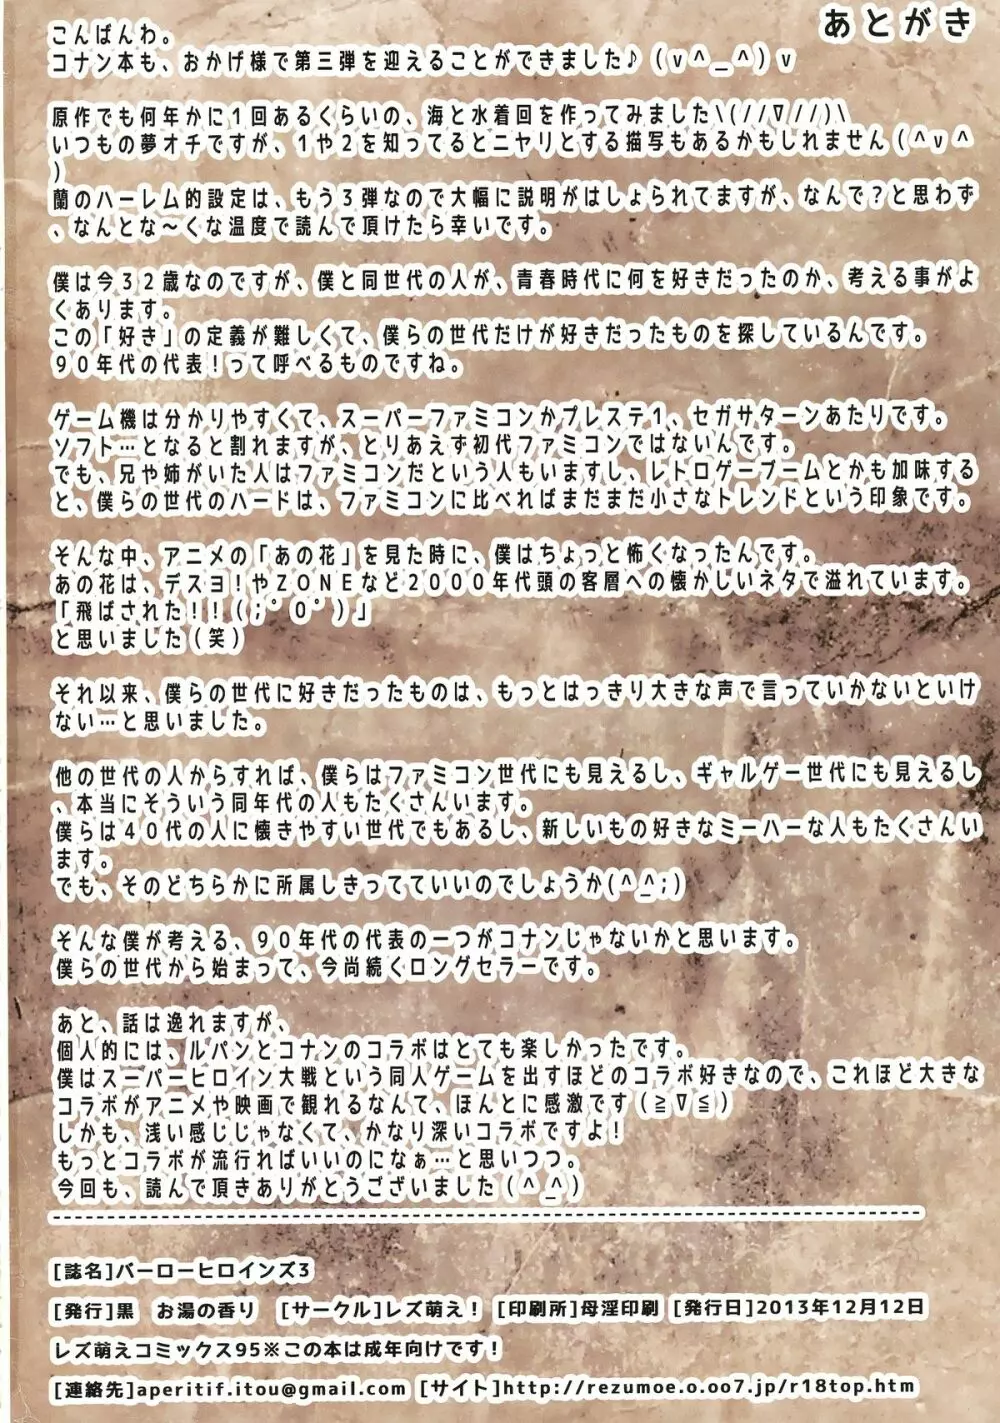 あとがき
こんばんわ。
コナン本も、おかげ様で第三弾を迎えることができました♪(v^_^)v
原作でも何年かに1回あるくらいの、海と水着回を作ってみました\(//∇//)\
いつもの夢オチですが、1や2を知ってるとニヤリとする描写もあるかもしれません(^v^
)
蘭のハーレム的設定は、もう3弾なので大幅に説明がはしょられてますが、なんで?と思わず
、なんとな～くな温度で読んで頂けたら幸いです。
僕は今32歳なのですが、僕と同世代の人が、青春時代に何を好きだったのか、考える事がよ
くあります。
この「好き」の定義が難しくて、僕らの世代だけが好きだったものを探しているんです。
90年代の代表!って呼べるものですね。
ゲーム機は分かりやすくて、スーパーファミコンかプレステ1、セガサターンあたりです。
ソフト…となると割れますが、とりあえず初代ファミコンではないんです。
でも、兄や姉がいた人はファミコンだという人もいますし、レトロゲーブームとかも加味する
と、僕らの世代のハードは、ファミコンに比べればまだまだ小さなトレンドという印象です。
そんな中、アニメの「あの花」を見た時に、僕はちょっと怖くなったんです。
あの花は、デスヨ!やZONEなど2000年代頭の客層への懐かしいネタで溢れています。
「飛ばされた!!(;゜0゜)」
と思いました(笑)
それ以来、僕らの世代に好きだったものは、もっとはっきり大きな声で言っていかないといけ
ない…と思いました。
他の世代の人からすれば、僕らはファミコン世代にも見えるし、ギャルゲー世代にも見えるし
、本当にそういう同年代の人もたくさんいます。
僕らは40代の人に懐きやすい世代でもあるし、新しいもの好きなミーハーな人もたくさんい
ます。
でも、そのどちらかに所属しきってていいのでしょうか(^_^;)
そんな僕が考える、90年代の代表の一つがコナンじゃないかと思います。
僕らの世代から始まって、今尚続くロングセラーです。
あと、話は逸れますが、
個人的には、ルパンとコナンのコラボはとても楽しかったです。
僕はスーパーヒロイン大戦という同人ゲームを出すほどのコラボ好きなので、これほど大きな
コラボがアニメや映画で観れるなんて、ほんとに感激です(≧∇≦)
しかも、浅い感じじゃなくて、かなり深いコラボですよ!
もっとコラボが流行ればいいのになぁ…と思いつつ。
今回も、読んで頂きありがとうございました(^_^)
[誌名]バーローヒロインズ3
[発行]黒　お湯の香り　[サークル]レズ萌え! [印刷所]母淫印刷 [発行日]2013年12月12日
レズ萌えコミックス95※この本は成年向けです!
[連絡先]aperitif.itou@gmail.com [サイト]http://rezumoe.o.oo7.jp/r18top.htm